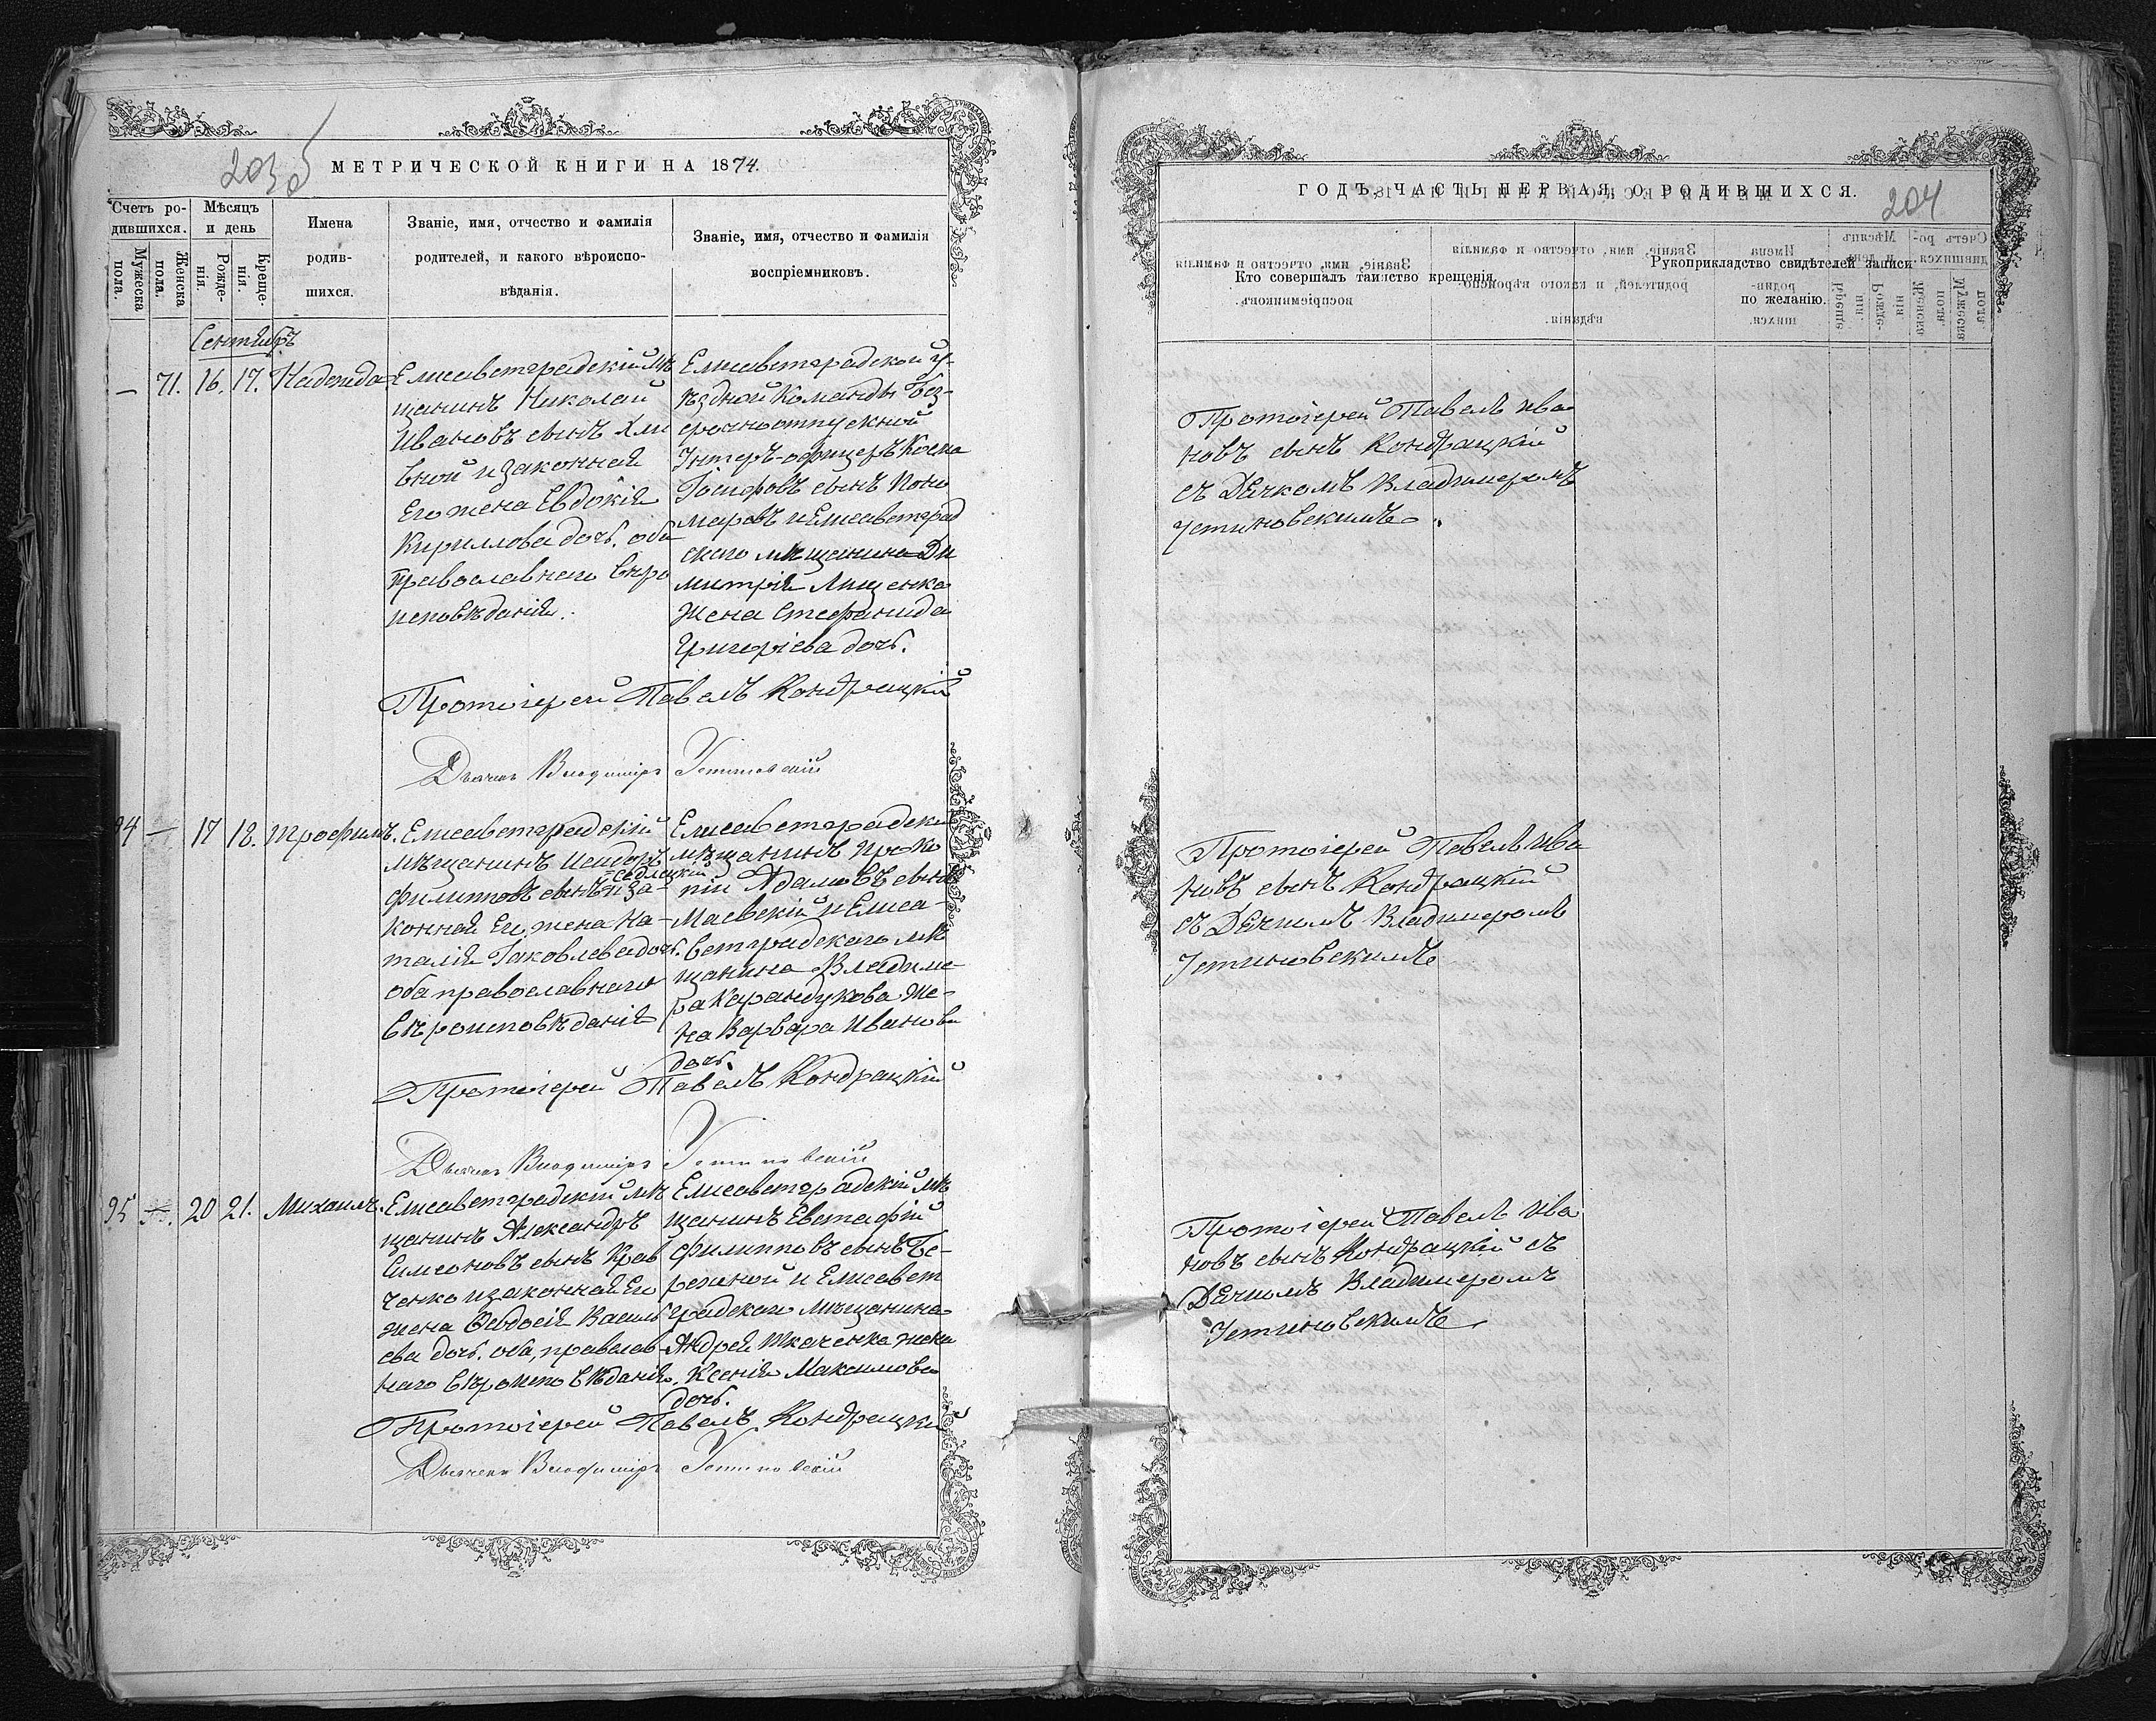 МЕТРИЧЕСКОЙ КНИГИ НА 1874.
Счетъ ро-
дившихся.
Мѣсяцъ
и день
Мужеска
пола.
Женска
пола.
Рожде-
нія.
Креще-
нія.
Имена
родив-
шихся.
Званіе, имя, отчество и фамилія
родителей, и какого вѣроиспо-
вѣданія.
Званіе, имя, отчество и фамилія
воспріемниковъ.
Сентябръ
— 71. 16. 17. Надежда
Елисаветградскій мѣ
щанинъ Николай
Ивановъ сынъ Хли
вной и законная
Его жена Евдокія
Кириллова дочь. оба
Православнаго вѣро
исповѣданія.
Елисаветградской у-
ѣздной Команды без-
срочноотпускной
Унтеръ-офицеръ Косма
Іосифовъ сынъ Поно
маровъ и Елисаветград
скаго мѣщанина Ди
митрія Лищенка
Жена Стефанида
Григоріева дочь.
Протоіерей Павелъ Кондрацкій
Дьячекъ Владиміръ Устиновскій
94 — 17 18. Трофимъ.
Елисаветградскій
мѣщанинъ Исидоръ
Филиповъ сынъ Седлецкій и за-
конная Его жена На-
талія Іаковлева дочь.
оба православнаго
вѣроисповѣданія
Елисаветградскій
мѣщанинъ Проко
пій Адамовъ сынъ
Маевскій и Елиса-
ветградскаго мѣ
щанина Владиме
ра Карандукова Же-
на Варвара Иванова
дочь.
Протоіерей Павелъ Кондрацкій
Дьячекъ Владиміръ Устиновскій
95 — 20 21. Михаилъ.
Елисаветградскій мѣ
щанинъ Александръ
Симеоновъ сынъ Крав
ченко и законная Его
жена Феодосія Василь
ева дочь. оба, православ-
наго вѣроисповѣданія.
Елисаветградскій мѣ
щанинъ Евстафій
Филипповъ сынъ Бе-
режной и Елисавет
градскаго мѣщанина
Андрея Ткаченка жена
Ксенія Максимова
дочь.
Протоіерей Павелъ Кондрацкій
Дьячекъ Владиміръ Устиновскій
ГОДЪ, ЧАСТЬ ПЕРВАЯ, О РОДИВШИХСЯ.
204
Кто совершалъ таинство крещенія.
Рукоприкладство свидѣтелей записи
по желанію.
Протоіерей Павелъ Ива
новъ сынъ Кондрацкій
съ Дячкомъ Владимеромъ
Устиновскимъ.
Протоіерей Павелъ Ива
новъ сынъ Кондрацкій
съ Дячкомъ Владимеромъ
Устиновскимъ
Протоіерей Павелъ Ива
новъ сынъ Кондрацкій съ
Дячкомъ Владимеромъ
Устиновскимъ